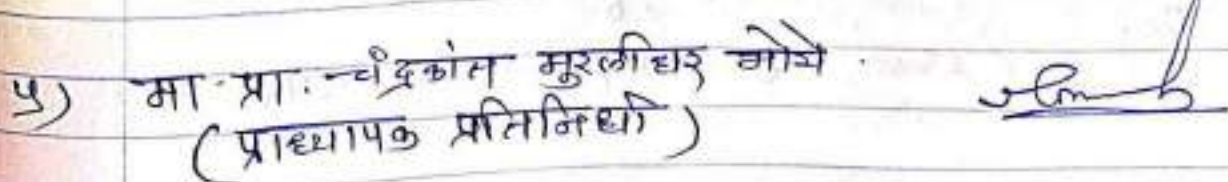 ५) मा. प्रा. चंद्रकांत मुरलीधर
(प्राध्यापक प्रतिनिधी)